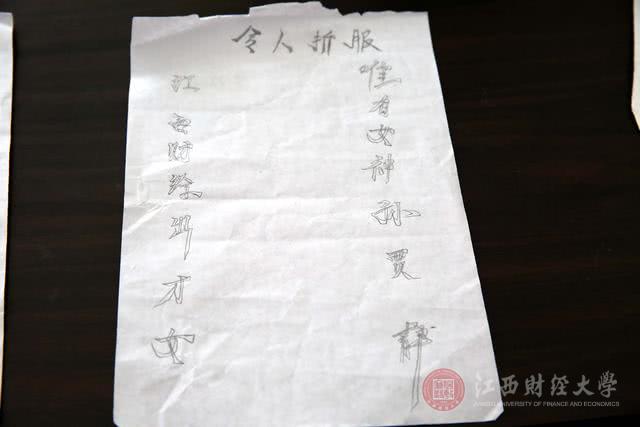 令人折服
唯有女神孙贾
江西财经出才女
江西财经大學
JIANGXI UNIVERSITY OF FINANCE AND ECONOMICS